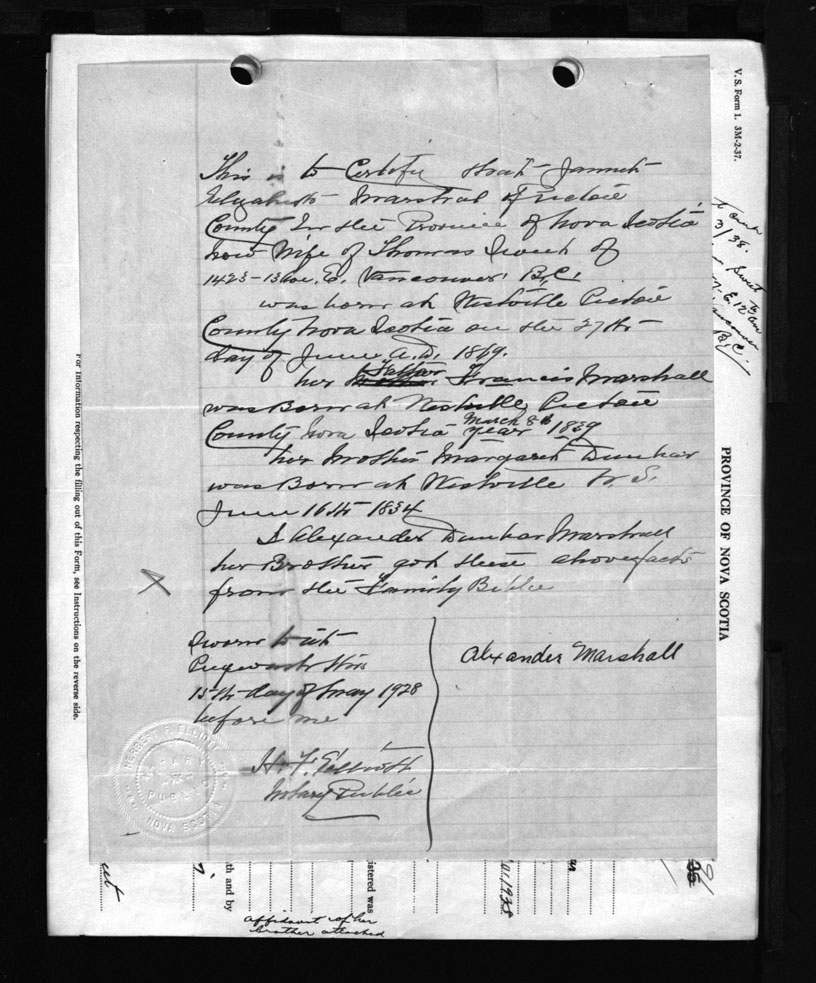 This is to Certify that Jannet
Elizabeth Marshal of Pictou
County In the Province of Nova Scotia
now Wife of Thomas Sweet of
1423-13 Ave. E. Vancouver B.C.
was born at Westville Pictou
County Nova Scotia on the 27th
day of June A.D. 1869.
her Father Francis Marshall
was Born at Westville Pictou
County Nova Scotia year March 8th 1839
her Mother Margaret Dunbar
was Born at Westville N.S.
June 16th 1834
I Alexander Dunbar Marshall
her Brother got these above facts
from the Family Bible
Sworn to at
Pugwash this
15th day of May 1938
before me
H. F. Elliott
Notary Public
Alexander Marshall
HERBERT F. ELLIOTT
NOTARY
PUBLIC
NOVA SCOTIA
V. S. Form 1. 3M-2-37.
3/38.
Sweet
E. 12
Vancouver
B.C.
PROVINCE OF NOVA SCOTIA
For Information respecting the filling out of this Form, see Instructions on the reverse side.
th and by
istered was
1938
affidavit of her
brother attached